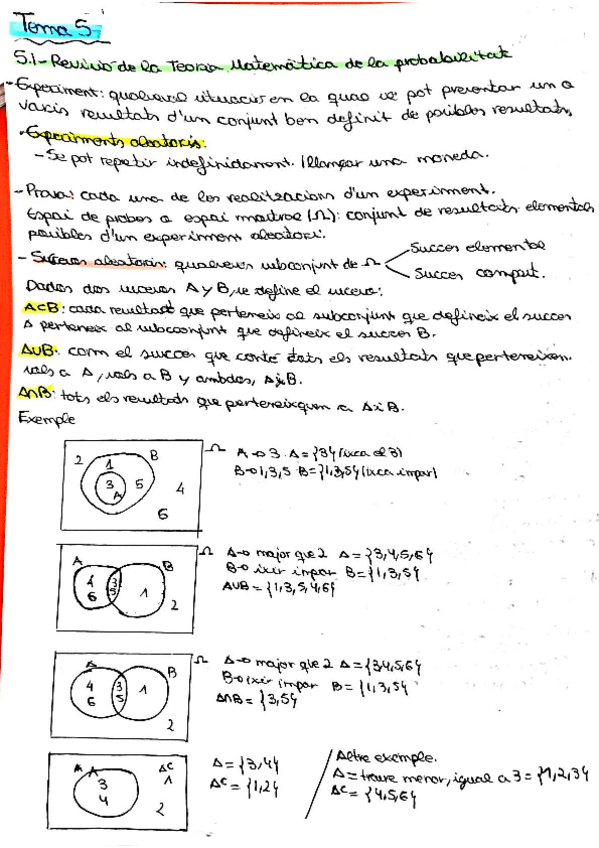 Tema 5
5.1- Revisió de la Teoria Matemàtica de la probabilitat
- Experiment: qualsevol situació en la qual se pot presentar un o
varis resultats d'un conjunt ben definit de posibles resultats.
- Experiments aleatoris:
- Se pot repetir indefinidament. / llançar una moneda.
- Prova: cada una de les realitzacions d'un experiment.
Espai de probes o espai mostral (Ω): conjunt de resultats elementals
posibles d'un experiment aleatori.
- Succesos aleatoris: qualsevol subconjunt de Ω
Succes elemental
Succes compost.
Dados dos sucesos A y B, se define el suceso:
A⊂B: cada resultat que perteneix al subconjunt que defineix el succes
A perteneix al subconjunt que defineix el succes B.
A∪B: com el succes que conté tots els resultats que perteneixen
sols a A, sols a B y ambdos, A i B.
A∩B: tots els resultats que perteneixquen a A i B.
Exemple
2 1 B Ω
3 A 5 4
6
A → 3 A = {3} (ixca el 3)
B → 1, 3, 5 B = {1,3,5} (ixca impar)
A B Ω
4 3 1
6 5 2
A → major que 2 A = {3,4,5,6}
B → ixir impar B = {1,3,5}
A∪B = {1,3,5,4,6}
A B Ω
4 3 1
6 5 2
A → major que 2 A = {3,4,5,6}
B → ixir impar B = {1,3,5}
A∩B = {3,5}
A A Aᶜ
3 1
4 2
A = {3,4}
Aᶜ = {1,2}
Altre exemple.
A = traure menor, igual a 3 = {1,2,3}
Aᶜ = {4,5,6}